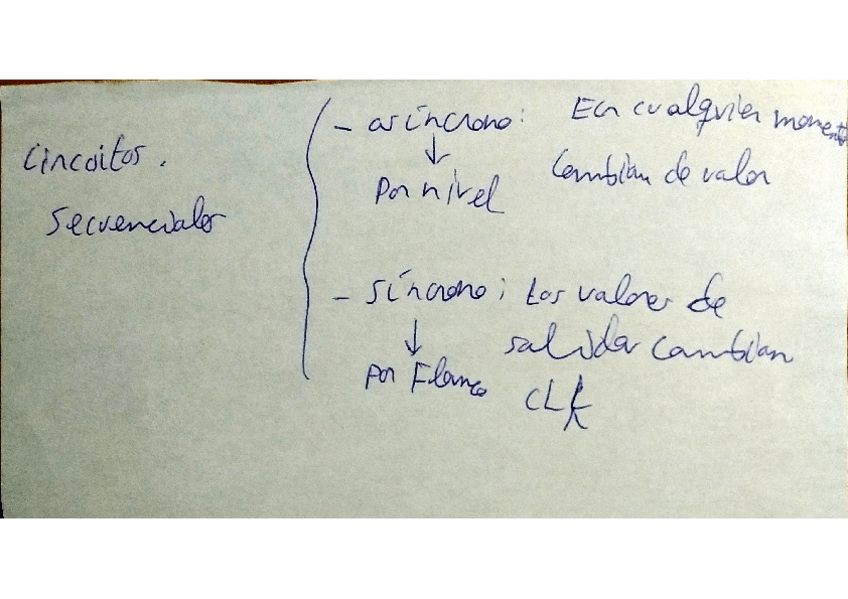 Circuitos.
Secuenciales
- asíncrono: En cualquier momento
↓ cambian de valor
Por nivel
- síncrono: Los valores de
↓ salida cambian
Por Flanco CLK